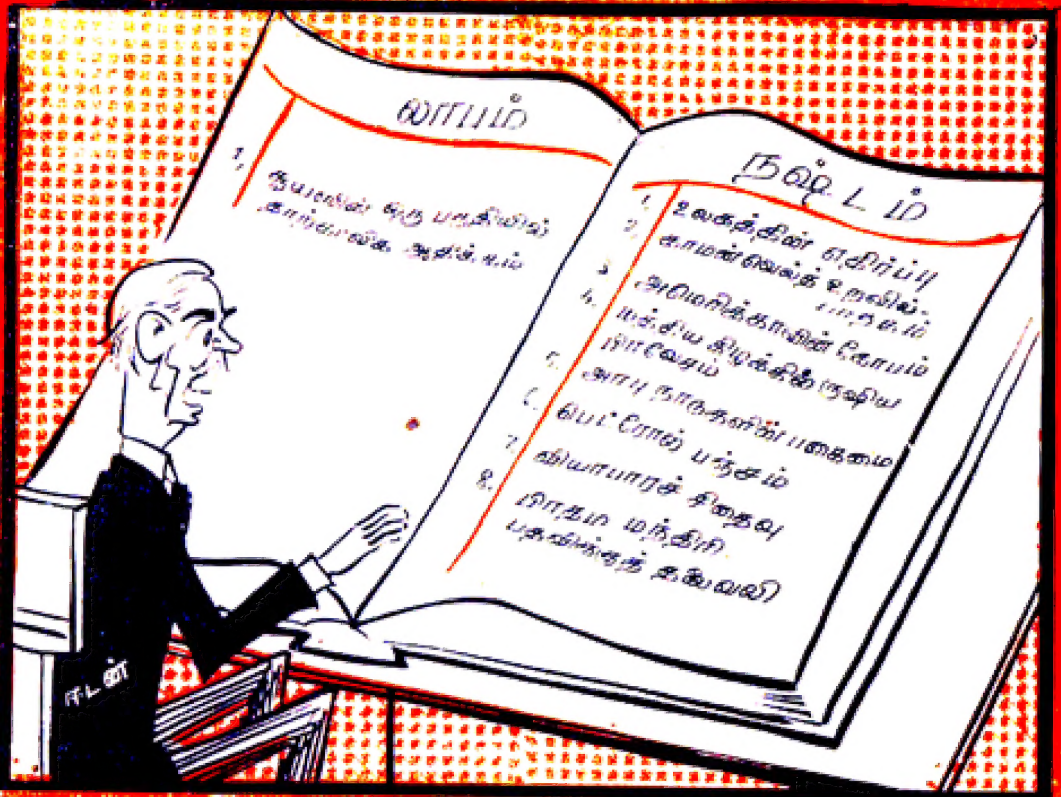 லாபம்
1,
சூயஸின் ஒரு பகுதியில்
தாற்காலிக ஆதிக்கம்
நஷ்டம்
1. உலகத்தின் எதிர்ப்பு
2, காமன்வெல்த் உறவில்-
3. அமெரிக்காவின் கோபம்
4. மத்திய கிழக்கில் ருஷிய
பிரவேசம்
5. அரபு நாடுகளின் பகைமை
6. பெட்ரோல் பஞ்சம்
7. வியாபாரச் சிதைவு
8. பிரதம மந்திரி
பதவிக்குத் தலைவலி
ஈடன்